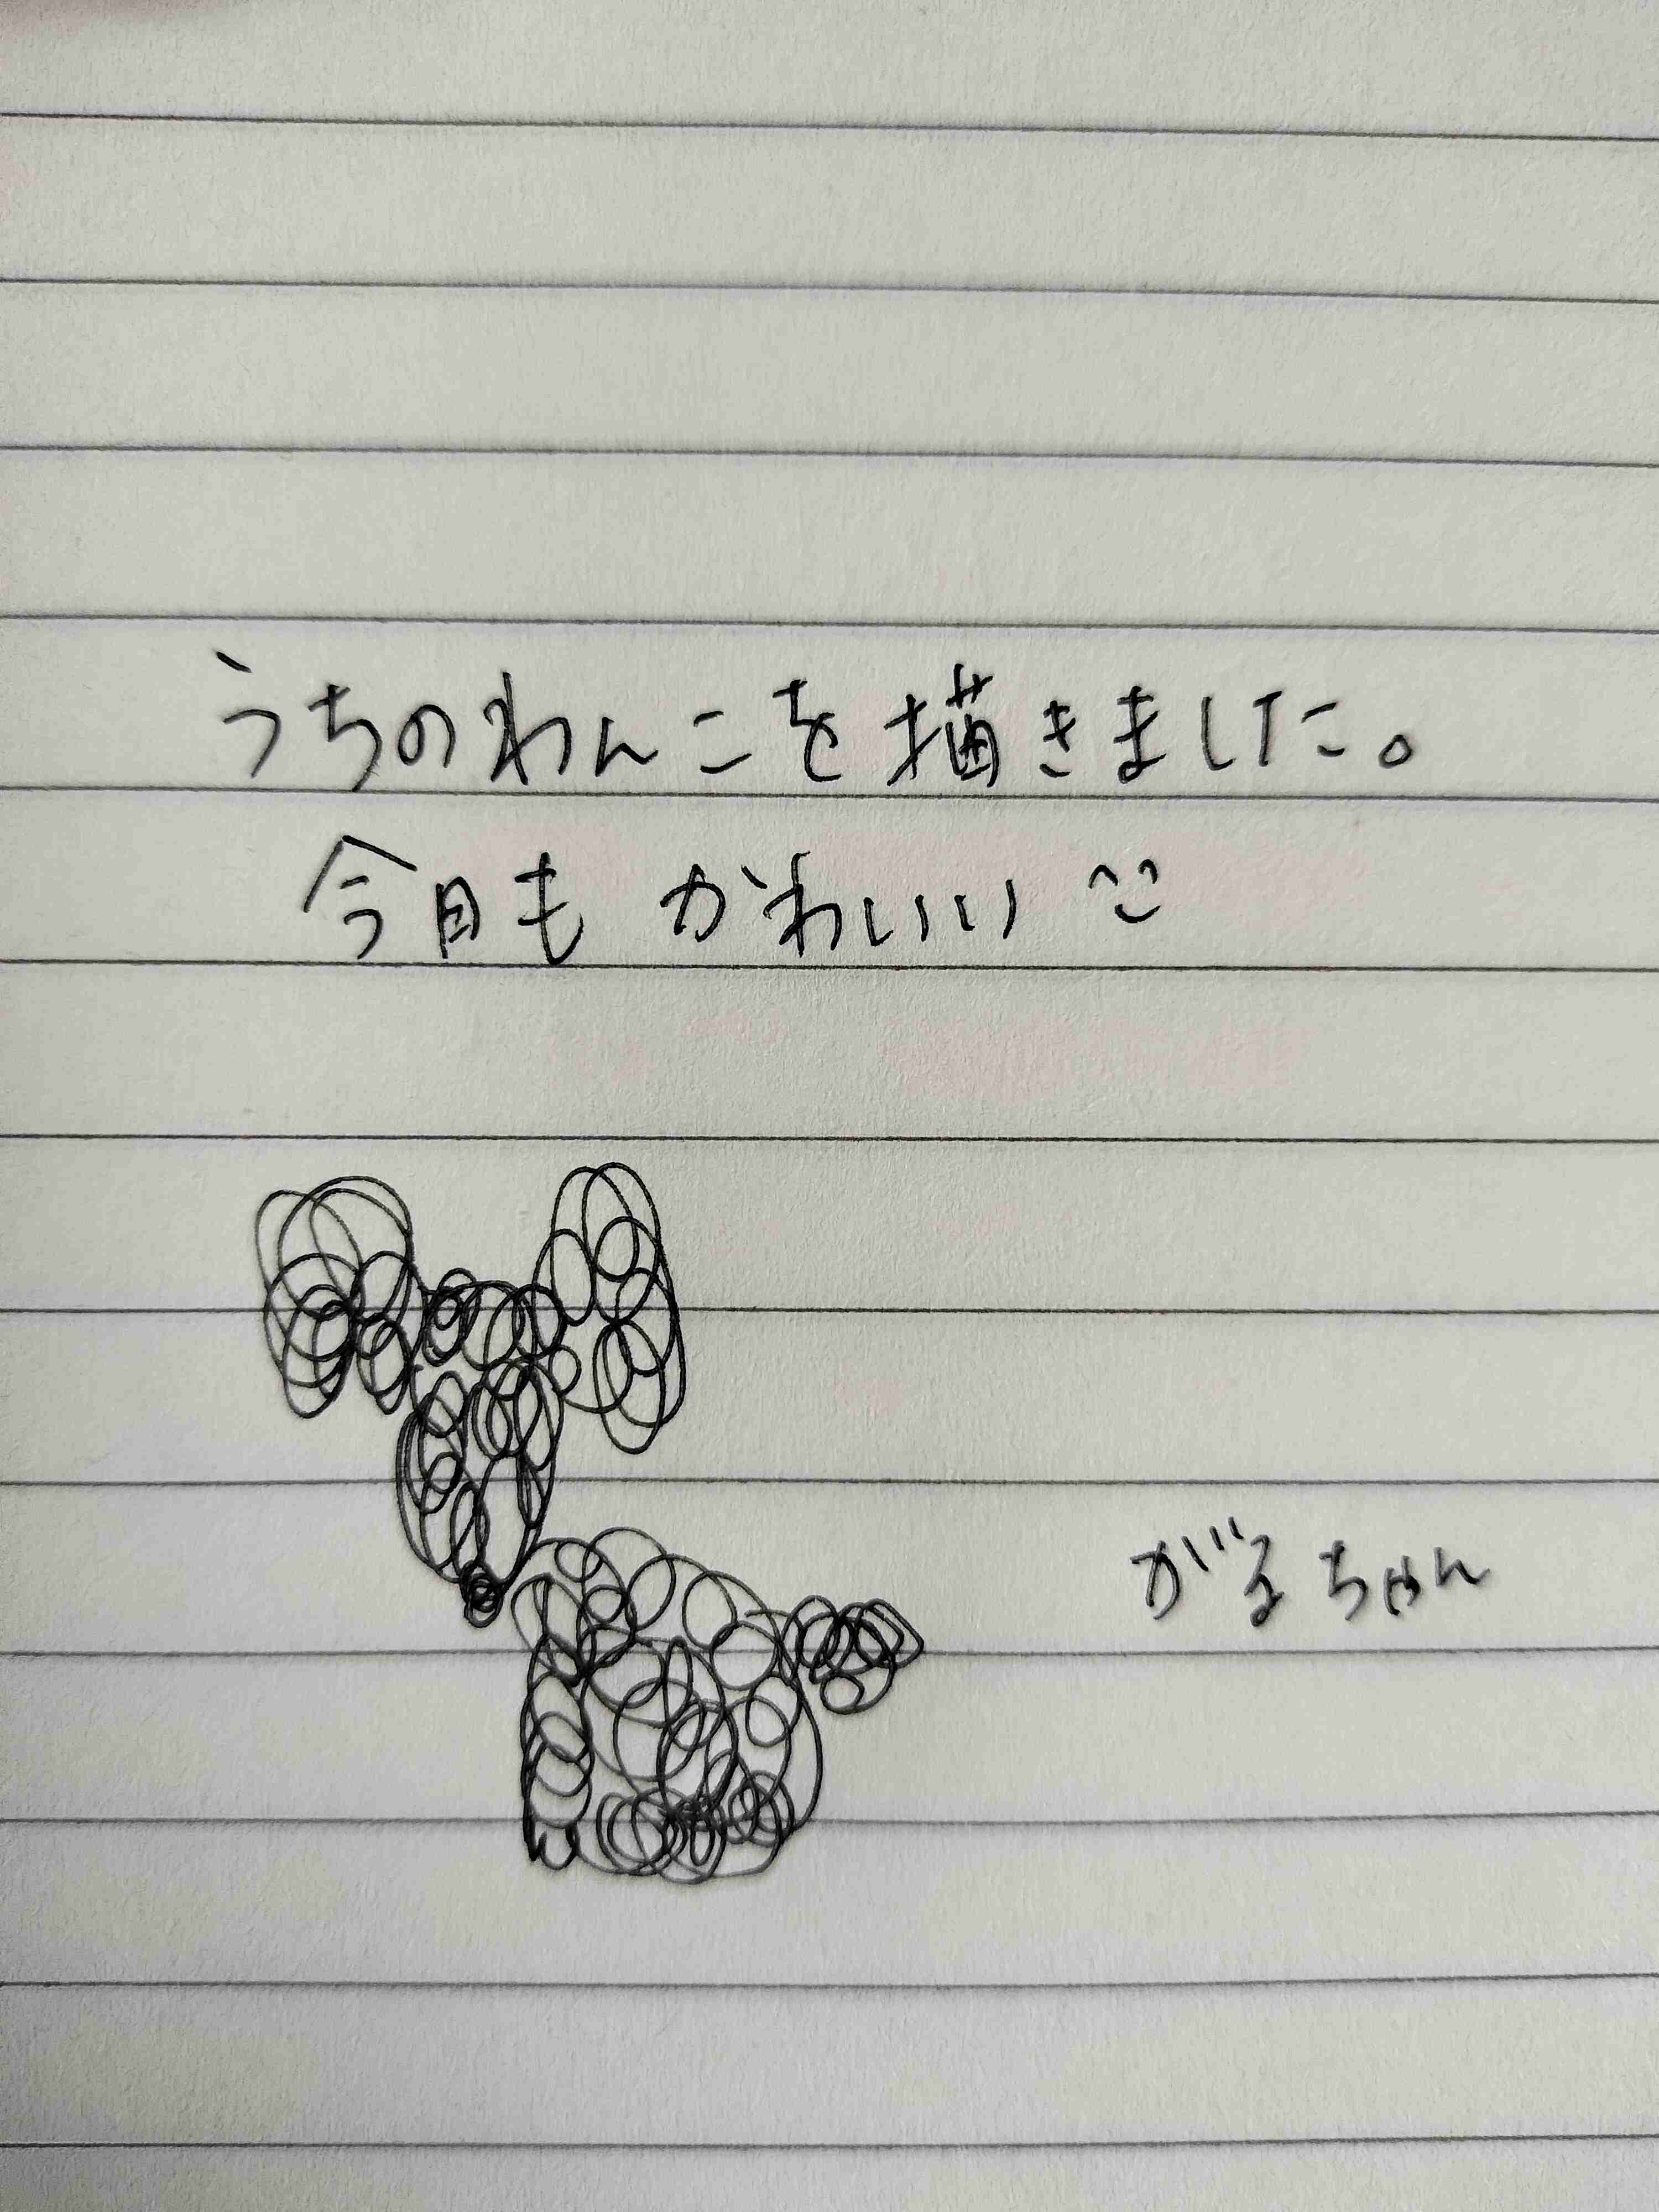 うちのわんこを描きました。
今日もかわいい
がるちゃん